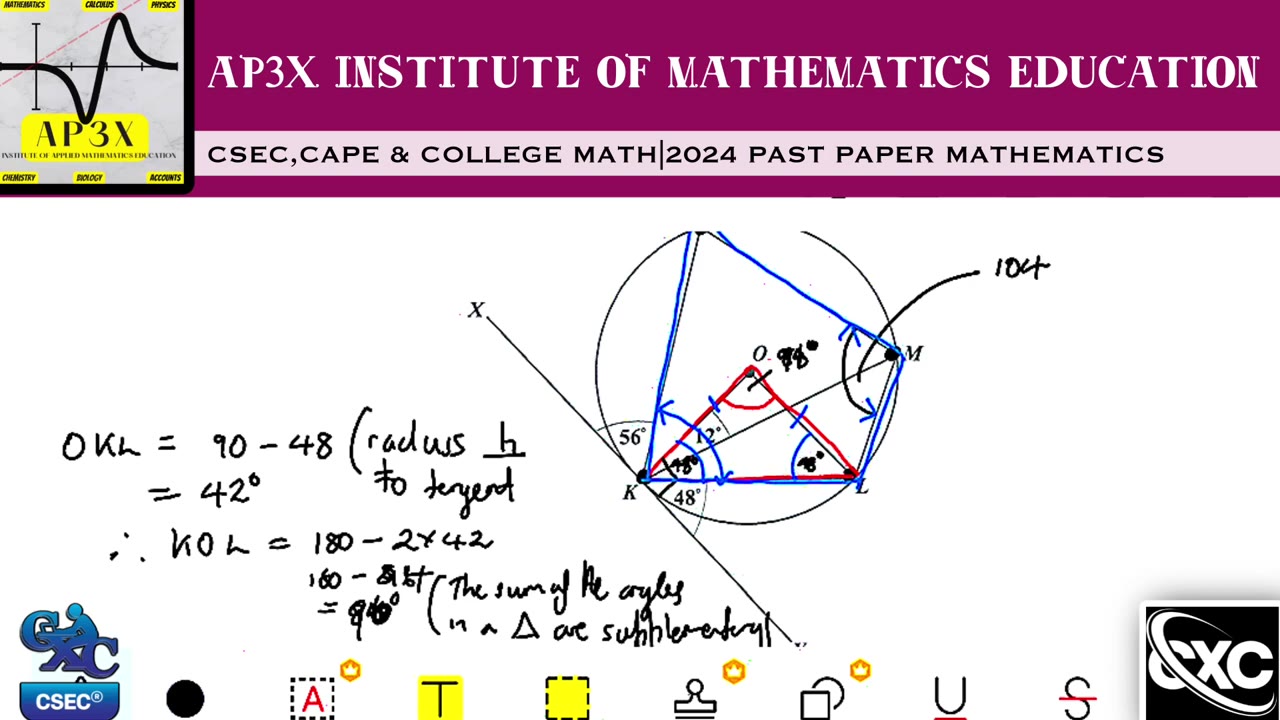 MATHEMATICS CALCULUS PHYSICS
AP3X
INSTITUTE OF APPLIED MATHEMATICS EDUCATION
CHEMISTRY BIOLOGY ACCOUNTS
AP3X INSTITUTE OF MATHEMATICS EDUCATION
CSEC,CAPE & COLLEGE MATH|2024 PAST PAPER MATHEMATICS
104
X
O
M
56°
12°
K
L
48°
OKL = 90 - 48 (radius
to
= 42°
∴ KOL = 180 - 2×42
(The sum of the angles
in a Δ are supplementary)
CXC
CSEC®
A
T
U
S
CXC